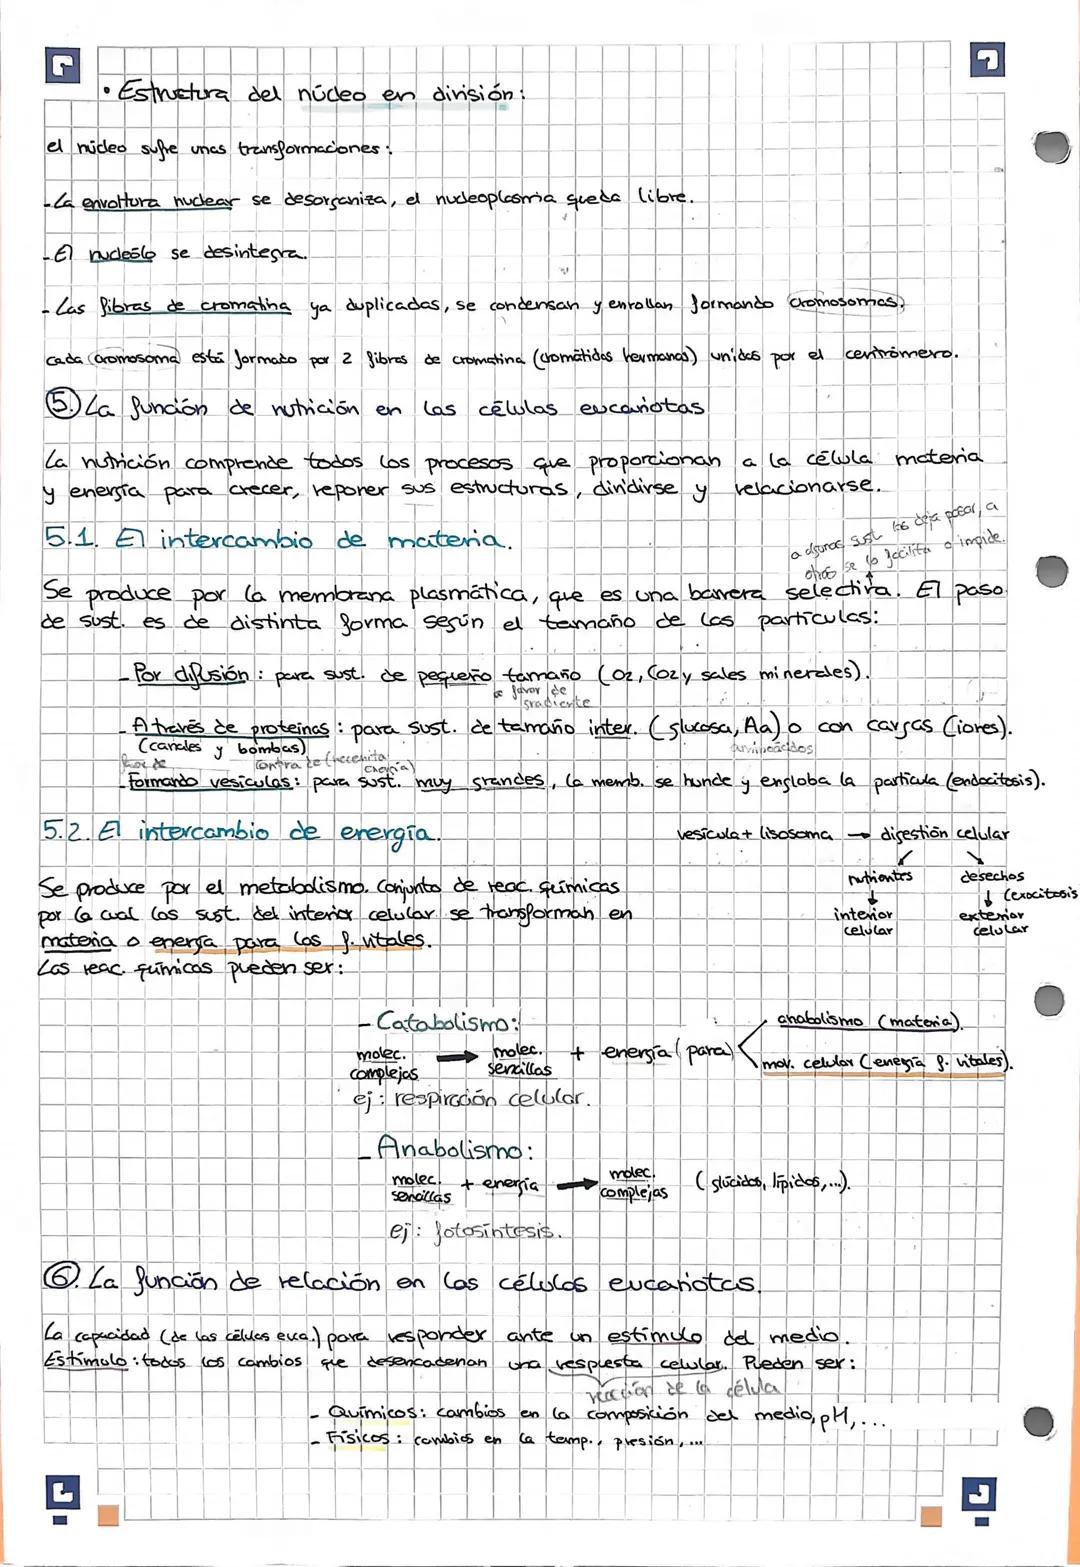 • Estructura del núcleo en división:
el núcleo sufre unas transformaciones:
- La envoltura nuclear se desorganiza, el nucleoplasma queda libre.
- El nucleólo se desintegra.
- Las fibras de cromatina ya duplicadas, se condensan y enrollan formando cromosomas,
cada cromosoma está formado por 2 fibras de cromatina (cromátidas hermanas) unidas por el centrómero.
5. La función de nutrición en las células eucariotas
La nutrición comprende todos los procesos que proporcionan a la célula materia
y energía para crecer, reponer sus estructuras, dividirse y relacionarse.
5.1. El intercambio de materia.
a algunas sust las deja pasar, a
otras se lo facilita o impide.
Se produce por la membrana plasmática, que es una barrera selectiva. El paso
de sust. es de distinta forma según el tamaño de las partículas:
- Por difusión: para sust. de pequeño tamaño (O2, CO2 y sales minerales).
a favor de
gradiente
- A través de proteínas: para sust. de tamaño inter. (glucosa, Aa) o con cargas (iones).
(canales y bombas)
aminoácidos
favor de
contra de (necesita
energía)
- Formando vesículas: para sust. muy grandes, la memb. se hunde y engloba la partícula (endocitosis).
5.2. El intercambio de energía.
vesícula + lisosoma → digestión celular
nutrientes
desechos
↓
↓ (exocitosis
interior
celular
exterior
celular
Se produce por el metabolismo. Conjunto de reac. químicas
por la cual las sust. del interior celular se transforman en
materia o energía para las f. vitales.
Las reac. químicas pueden ser:
- Catabolismo:
molec.
complejas → molec.
sencillas + energía (para)
anabolismo (materia).
mov. celular (energía f. vitales).
ej: respiración celular.
- Anabolismo:
molec.
sencillas + energía → molec.
complejas (glúcidos, lípidos,...).
ej: fotosíntesis.
6. La función de relación en las células eucariotas.
La capacidad (de las células euca.) para responder ante un estímulo del medio.
Estímulo: todos los cambios que desencadenan una respuesta celular. Pueden ser:
reacción de la célula
- Químicos: cambios en la composición del medio, pH,...
- Físicos: cambios en la temp., presión,...